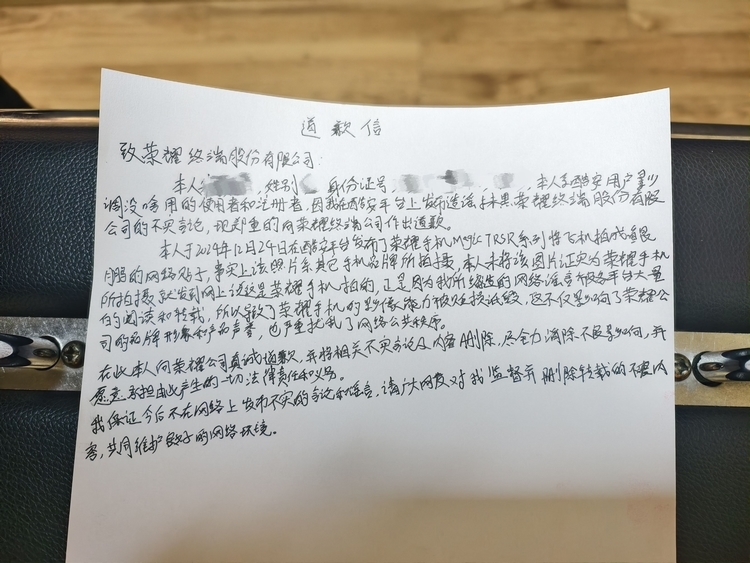 道歉信
致荣耀终端股份有限公司:
本人 ,姓别 ,身份证号, , ,本人系酷安用户
调没啥用的使用者和注册者,因我在酷安平台上发布造谣 荣耀终端股份有限
公司的不实言论,现郑重的向荣耀终端公司作出道歉。
本人于2024年12月24日在酷安平台发布了荣耀手机Magic7RSR系列将飞机拍成
的网络贴子,事实上该照片系其它手机品牌所拍摄,本人未将该图片证实为荣耀手机
所拍摄,就发到网上说这是荣耀手机拍的,正是因为我所编造的网络谣言被各平台大量
的阅读和转载,所以导致了荣耀手机的影像能力被 诋毁,这不仅影响了荣耀公
司的品牌形象和产品声誉,也严重扰乱了网络公共秩序。
在此本人向荣耀公司真诚道歉,并将相关不实言论及内容删除,尽全力消除不良影响,并
愿意承担由此产生的一切法律责任和义务。
我保证今后不在网络上发布不实的言论和谣言,请广大网友对我监督并删除转载的不良内
容,共同维护良好的网络环境。